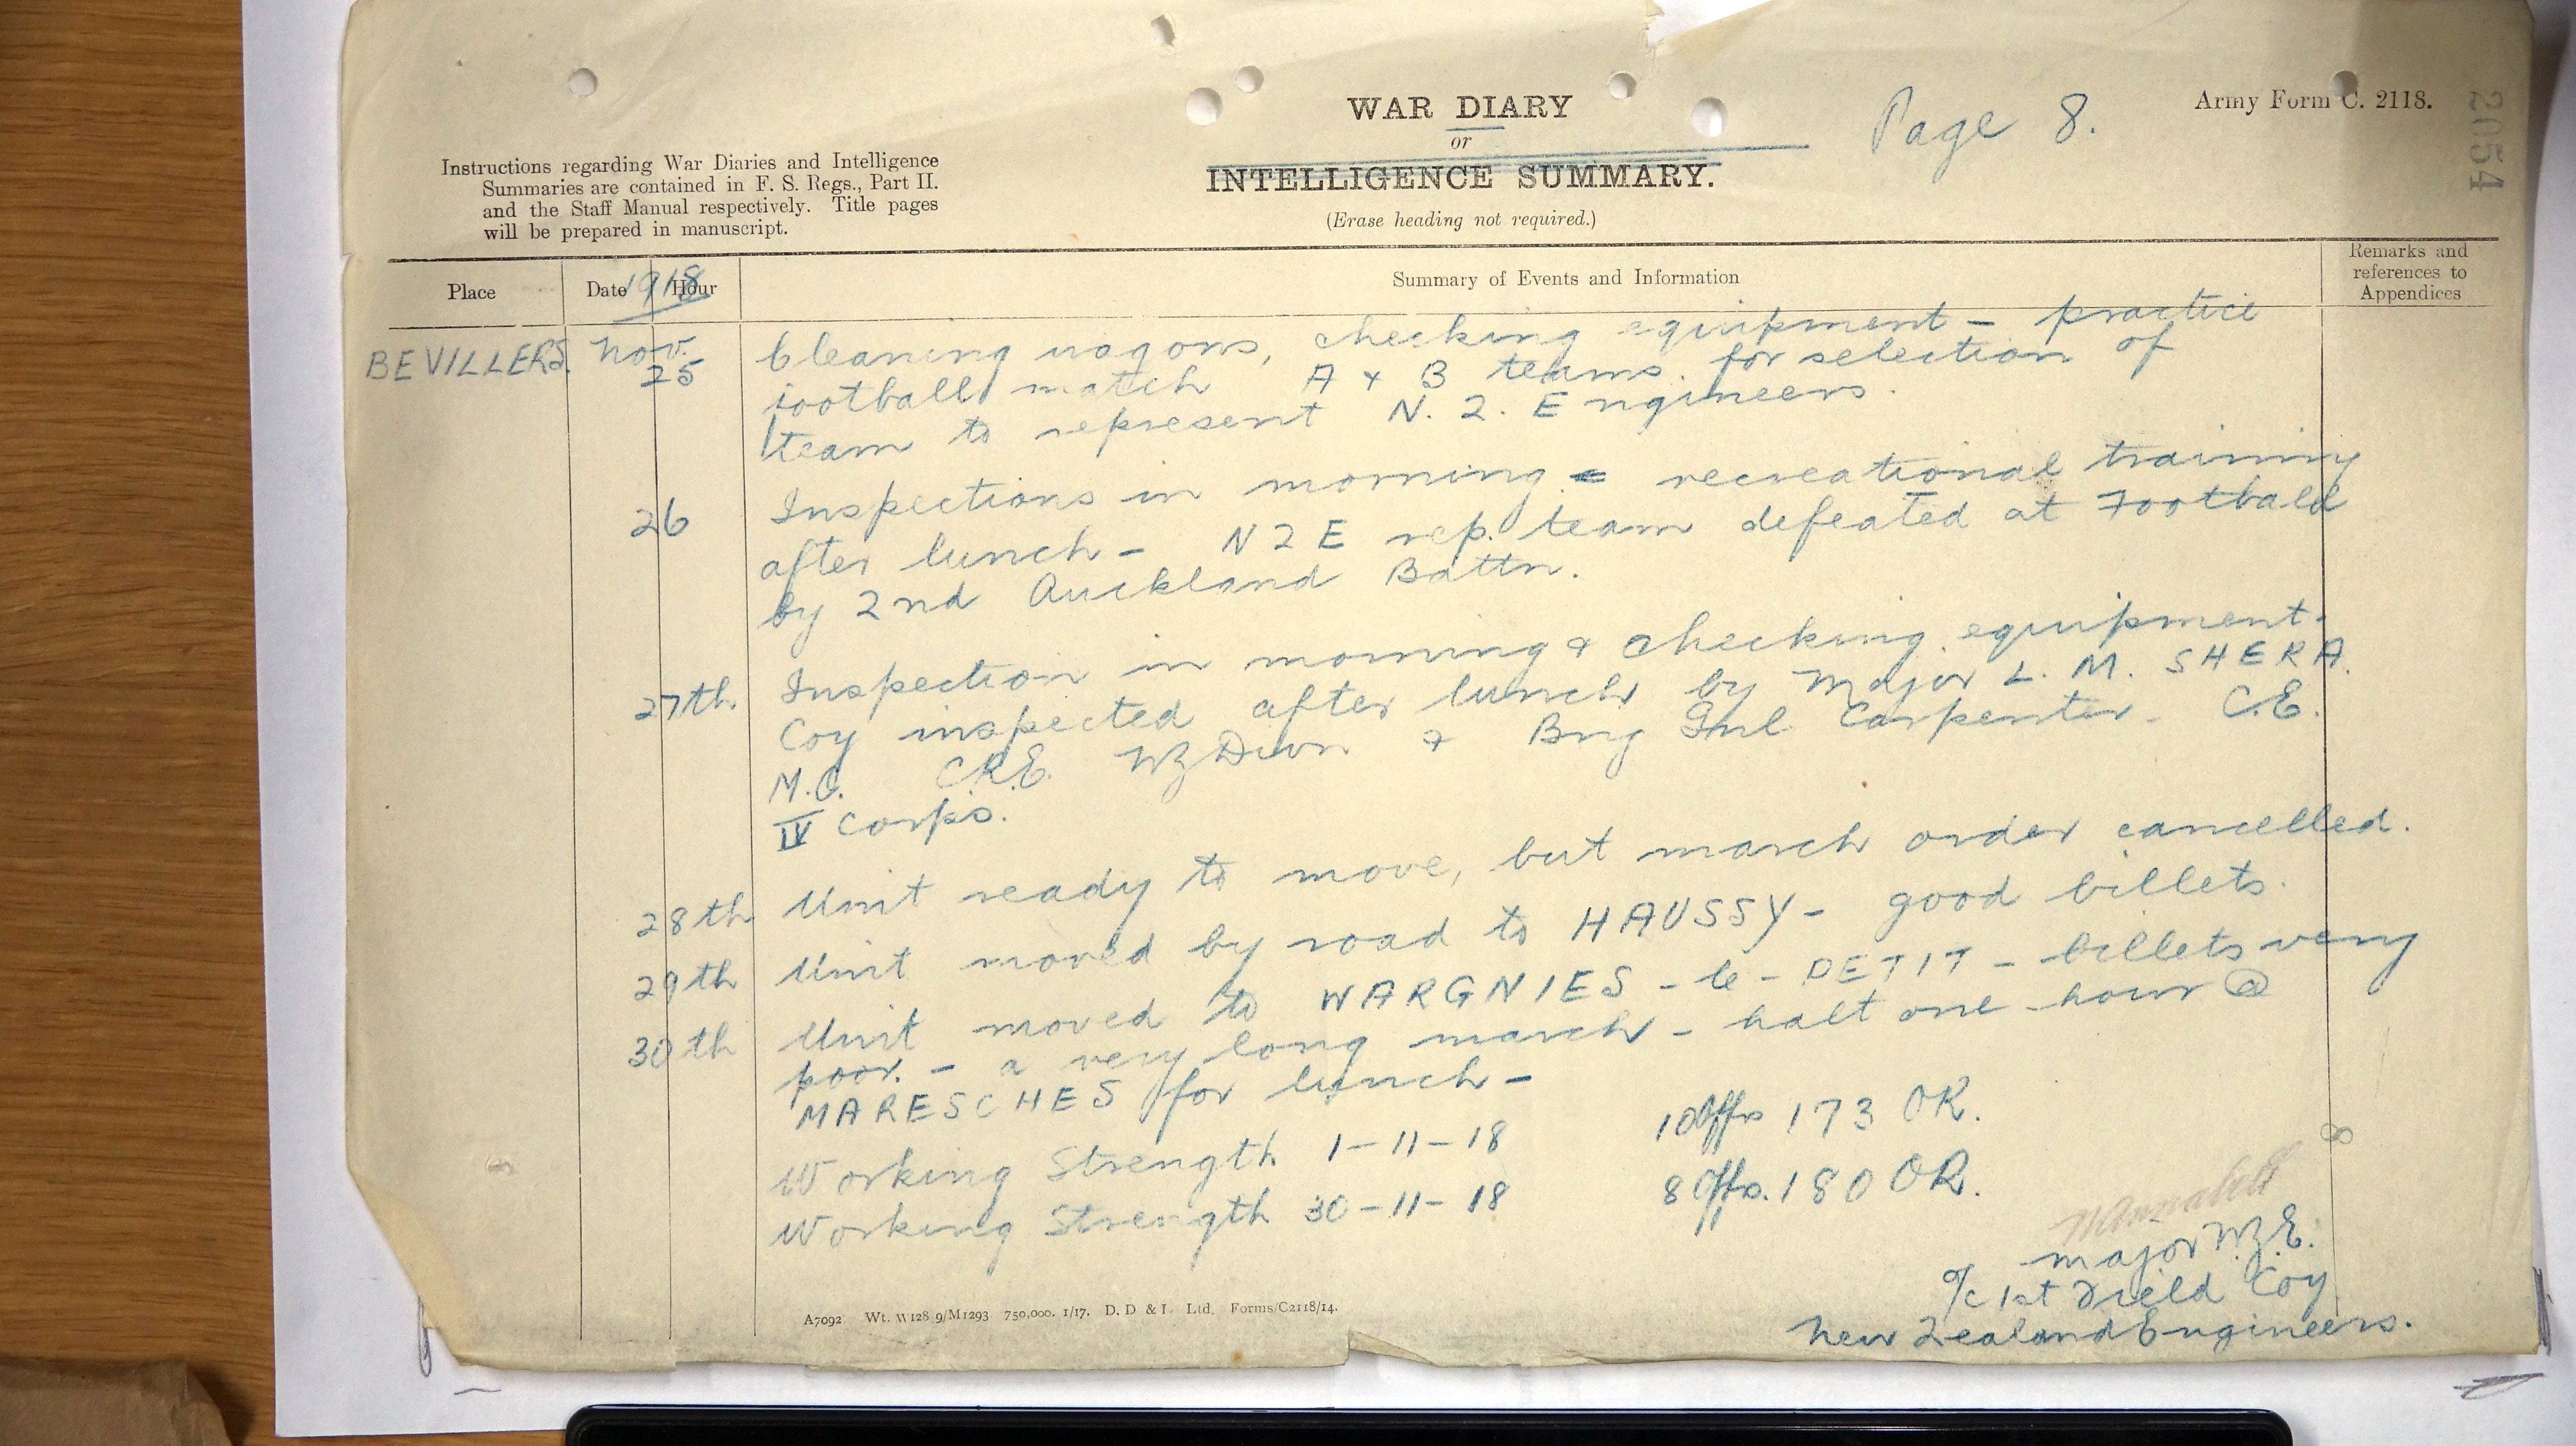 WAR DIARY
or
INTELLIGENCE SUMMARY.
(Erase heading not required.)
Page 8.
Army Form C. 2118.
2054
Instructions regarding War Diaries and Intelligence
Summaries are contained in F. S. Regs., Part II.
and the Staff Manual respectively. Title pages
will be prepared in manuscript.
Place
Date
Hour
1918
Summary of Events and Information
Remarks and
references to
Appendices
BEVILLERS. Nov. 25 Cleaning wagons, checking equipment - practice
football match A & B teams. for selection of
team to represent N. Z. Engineers.
26 Inspections in morning - recreational training
after lunch - N Z E rep. team defeated at Football
by 2nd Auckland Battn.
27th. Inspection in morning & checking equipment.
Coy inspected after lunch by Major L. M. SHERA.
M.C. C.R.E. NZ Divn & Brig Gnl. Carpenter. C.E.
IV Corps.
28th Unit ready to move, but march order cancelled.
29th Unit moved by road to HAUSSY - good billets.
30th Unit moved to WARGNIES - le - PETIT - billets very
poor. - a very long march - halt one hour @
MARESCHES for lunch -
Working Strength 1-11-18 10 Offrs 173 OR.
Working Strength 30-11-18 8 Offrs. 180 OR.
Major N.Z.E.
O/c 1st Field Coy
New Zealand Engineers.
A7092 Wt. W128 9/M1293 750,000. 1/17. D. D & L. Ltd. Forms/C2118/14.